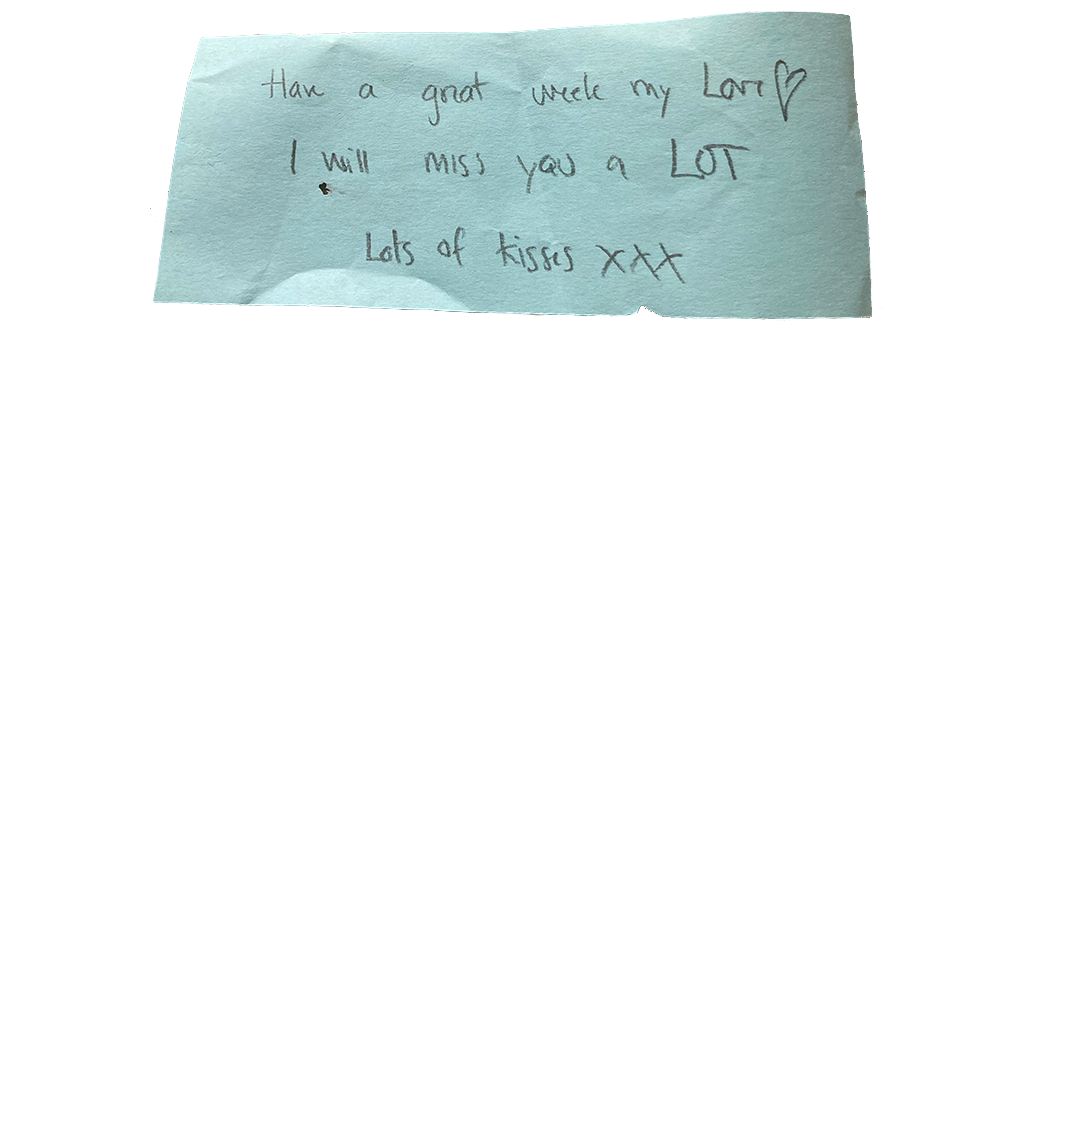 Have a great week my Love ♡
I will miss you a LOT
Lots of kisses xxx